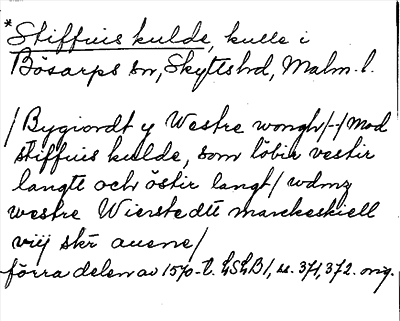 * Stiffuis kulde, kulle i
Bösarps sn, Skyttshd, Malm. l.
/ Bygiordt y Westre wongh /-/ Mod
stiffuis kulde, som löbir vestir
langtt och östir langt / wdmz
westre Wierstedtt marckeskiell
viij skr auene /
förra delen av 1570-t. LSLB 1, s. 371, 372. orig.